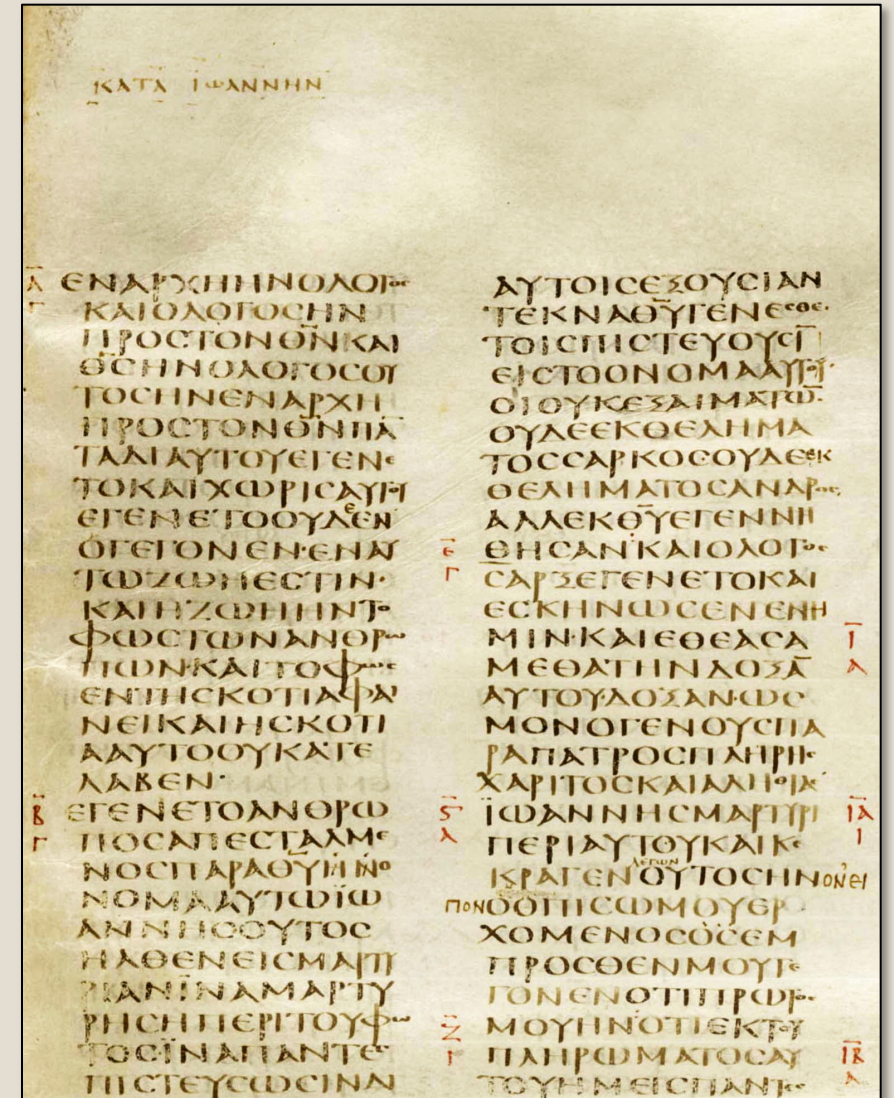 ΚΑΤΑ ΙΩΑΝΝΗΝ
Α̅ ΕΝΑΡΧΗΗΝΟΛΟΓΟϹ
Γ ΚΑΙΟΛΟΓΟϹΗΝ
ΠΡΟϹΤΟΝΘ̅Ν̅ΚΑΙ
Θ̅Ϲ̅ΗΝΟΛΟΓΟϹΟΥ
ΤΟϹΗΝΕΝΑΡΧΗ
ΠΡΟϹΤΟΝΘ̅Ν̅ΠΑ
ΤΑΔΙΑΥΤΟΥΕΓΕΝΕ
ΤΟΚΑΙΧΩΡΙϹΑΥΤΟΥ
ΕΓΕΝΕΤΟΟΥΔΕΝ
ΟΓΕΓΟΝΕΝ·ΕΝΑΥ
ΤΩΖΩΗΕϹΤΙΝ·
ΚΑΙΗΖΩΗΗΝΤΟ
ΦΩϹΤΩΝΑΝΘΡΩ
ΠΩΝ·ΚΑΙΤΟΦΩϹ
ΕΝΤΗϹΚΟΤΙΑΦΑΙ
ΝΕΙΚΑΙΗϹΚΟΤΙ
ΑΑΥΤΟΟΥΚΑΤΕ
ΛΑΒΕΝ·
Β̅ ΕΓΕΝΕΤΟΑΝΘΡΩ
Γ ΠΟϹΑΠΕϹΤΑΛΜΕ
ΝΟϹΠΑΡΑΘ̅Υ̅ΗΝΟ
ΝΟΜΑΑΥΤΩΪΩ
ΑΝΝΗϹΟΥΤΟϹ
ΗΛΘΕΝΕΙϹΜΑΡΤΥ
ΡΙΑΝΪΝΑΜΑΡΤΥ
ΡΗϹΗΠΕΡΙΤΟΥΦΩ
ΤΟϹΪΝΑΠΑΝΤΕϹ
ΠΙϹΤΕΥϹΩϹΙΝΔΙ
ΑΥΤΟΙϹΕΞΟΥϹΙΑΝ
ΤΕΚΝΑΘ̅Υ̅ΓΕΝΕϹΘΕ·
ΤΟΙϹΠΙϹΤΕΥΟΥϹΙ̅
ΕΙϹΤΟΟΝΟΜΑΑΥΤΟΥ·
ΟΙΟΥΚΕΞΑΙΜΑΤΩ̅·
ΟΥΔΕΕΚΘΕΛΗΜΑ
ΤΟϹϹΑΡΚΟϹΟΥΔΕΕΚ
ΘΕΛΗΜΑΤΟϹΑΝΔΡΟϹ
ΑΛΛΕΚΘ̅Υ̅ΕΓΕΝΝΗ
Ε̅ ΘΗϹΑΝ·ΚΑΙΟΛΟΓΟϹ
Γ ϹΑΡΞΕΓΕΝΕΤΟΚΑΙ
ΕϹΚΗΝΩϹΕΝΕΝΗ
ΜΙΝ·ΚΑΙΕΘΕΑϹΑ Ι̅
ΜΕΘΑΤΗΝΔΟΞΑ̅ Α
ΑΥΤΟΥ·ΔΟΞΑΝ·ΩϹ
ΜΟΝΟΓΕΝΟΥϹΠΑ
ΡΑΠΑΤΡΟϹΠΛΗΡΗϹ
ΧΑΡΙΤΟϹΚΑΙΑΛΗΘΙΑϹ
Ϛ̅ ΪΩΑΝΝΗϹΜΑΡΤΥΡΙ Ι̅Α̅
Α ΠΕΡΙΑΥΤΟΥΚΑΙΚΕ Ι
ΛΕΓΩΝ
ΚΡΑΓΕΝΟΥΤΟϹΗΝΟΝΕΙ
ΠΟΝΟΟΠΙϹΩΜΟΥΕΡ
ΧΟΜΕΝΟϹΟϹΕΜ
ΠΡΟϹΘΕΝΜΟΥΓΕ
ΓΟΝΕΝΟΤΙΠΡΩΤΟϹ
Ζ̅ ΜΟΥΗΝΟΤΙΕΚΤΟΥ
Γ ΠΛΗΡΩΜΑΤΟϹΑΥ Ι̅Β̅
ΤΟΥΗΜΕΙϹΠΑΝΤΕϹ Α